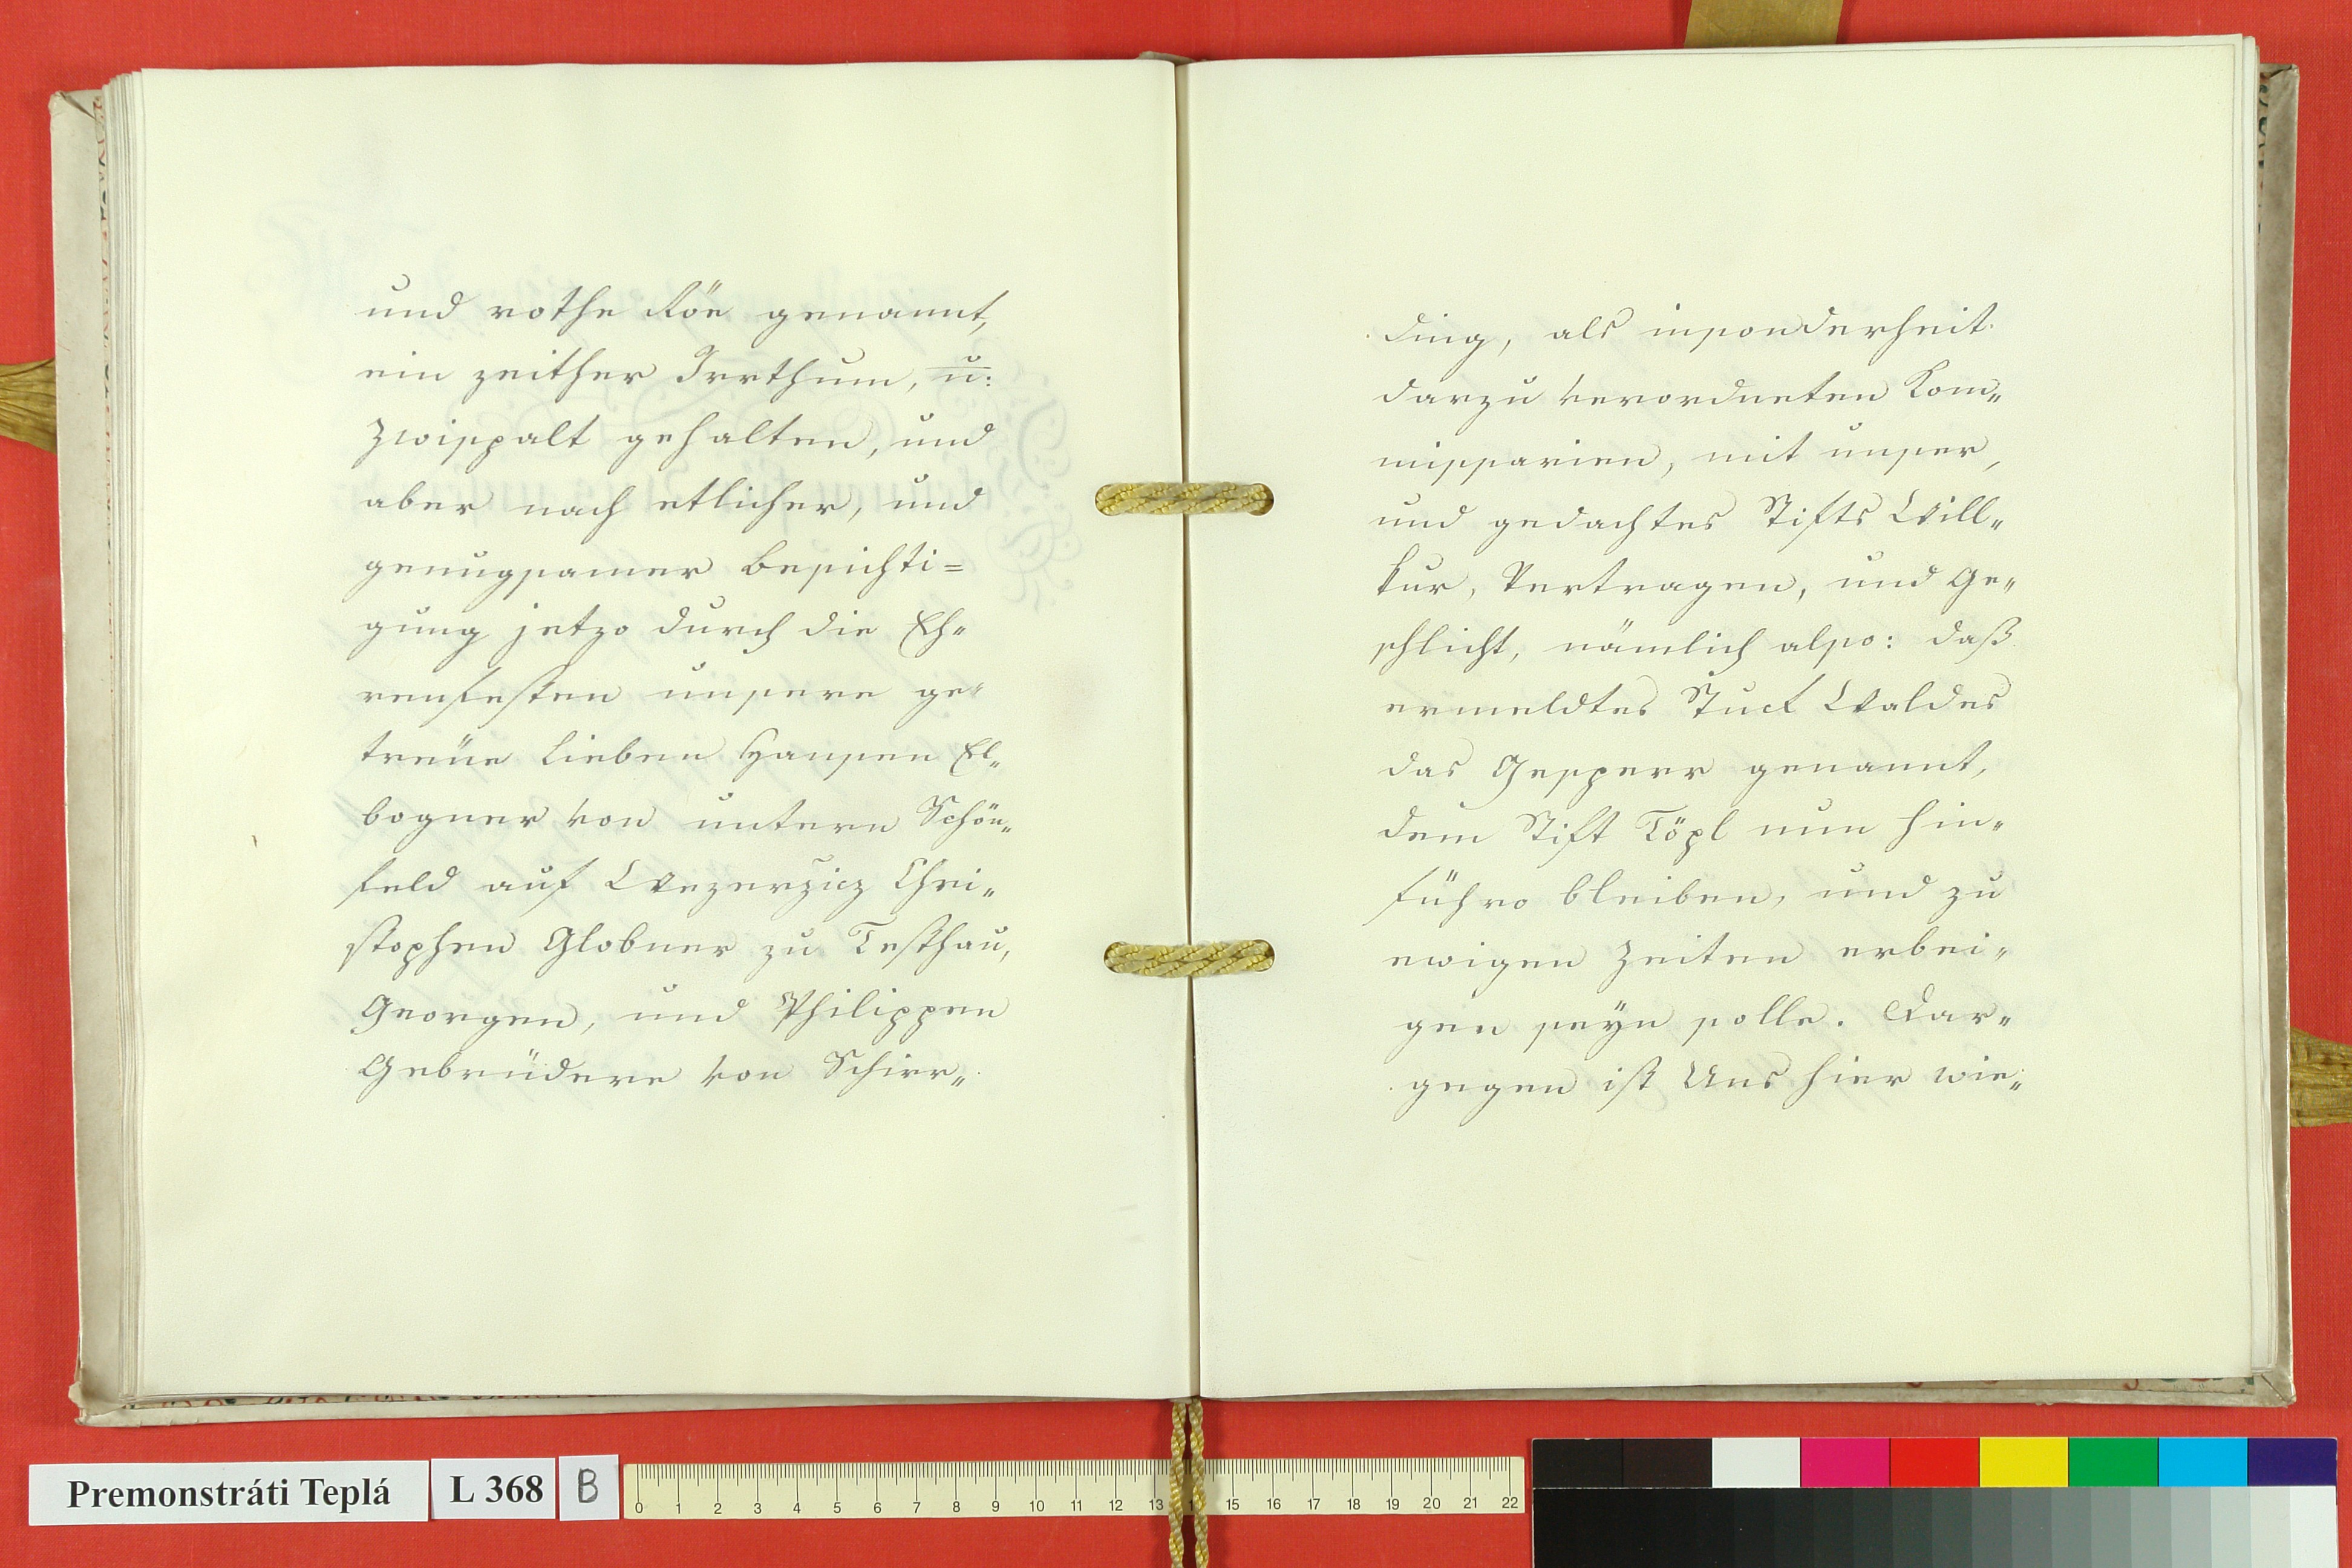 und rothe Föe genannt,
ein zeither Irrthum, u:
Zwisspalt gehalten, und
aber nach etlicher, und
genugsamer Besichti=
gung jetzo durch die Eh„
renfesten unsere ge„
treüe Lieben Hansen El„
bogner von untern Schön„
feld auf Wezerzicz Chri„
stophen Globner zu Testhau,
Georgen, und Philippen
Gebrüdere von Schirr„
ding, als insonderheit
darzu verordneten Kom„
missarien, mit unser,
und gedachtes Stifts Will„
kur, Vertragen, und Ge„
schlicht, nämlich also: daß
ermeldtes Stuck Waldes
das Gesperr genannt,
dem Stift Töpl nun hin„
führo bleiben, und zu
ewigen Zeiten erbei„
gen seyn solle. Dar„
gegen ist Uns hier wie„
Premonstráti Teplá L 368 B
0 1 2 3 4 5 6 7 8 9 10 11 12 13 15 16 17 18 19 20 21 22